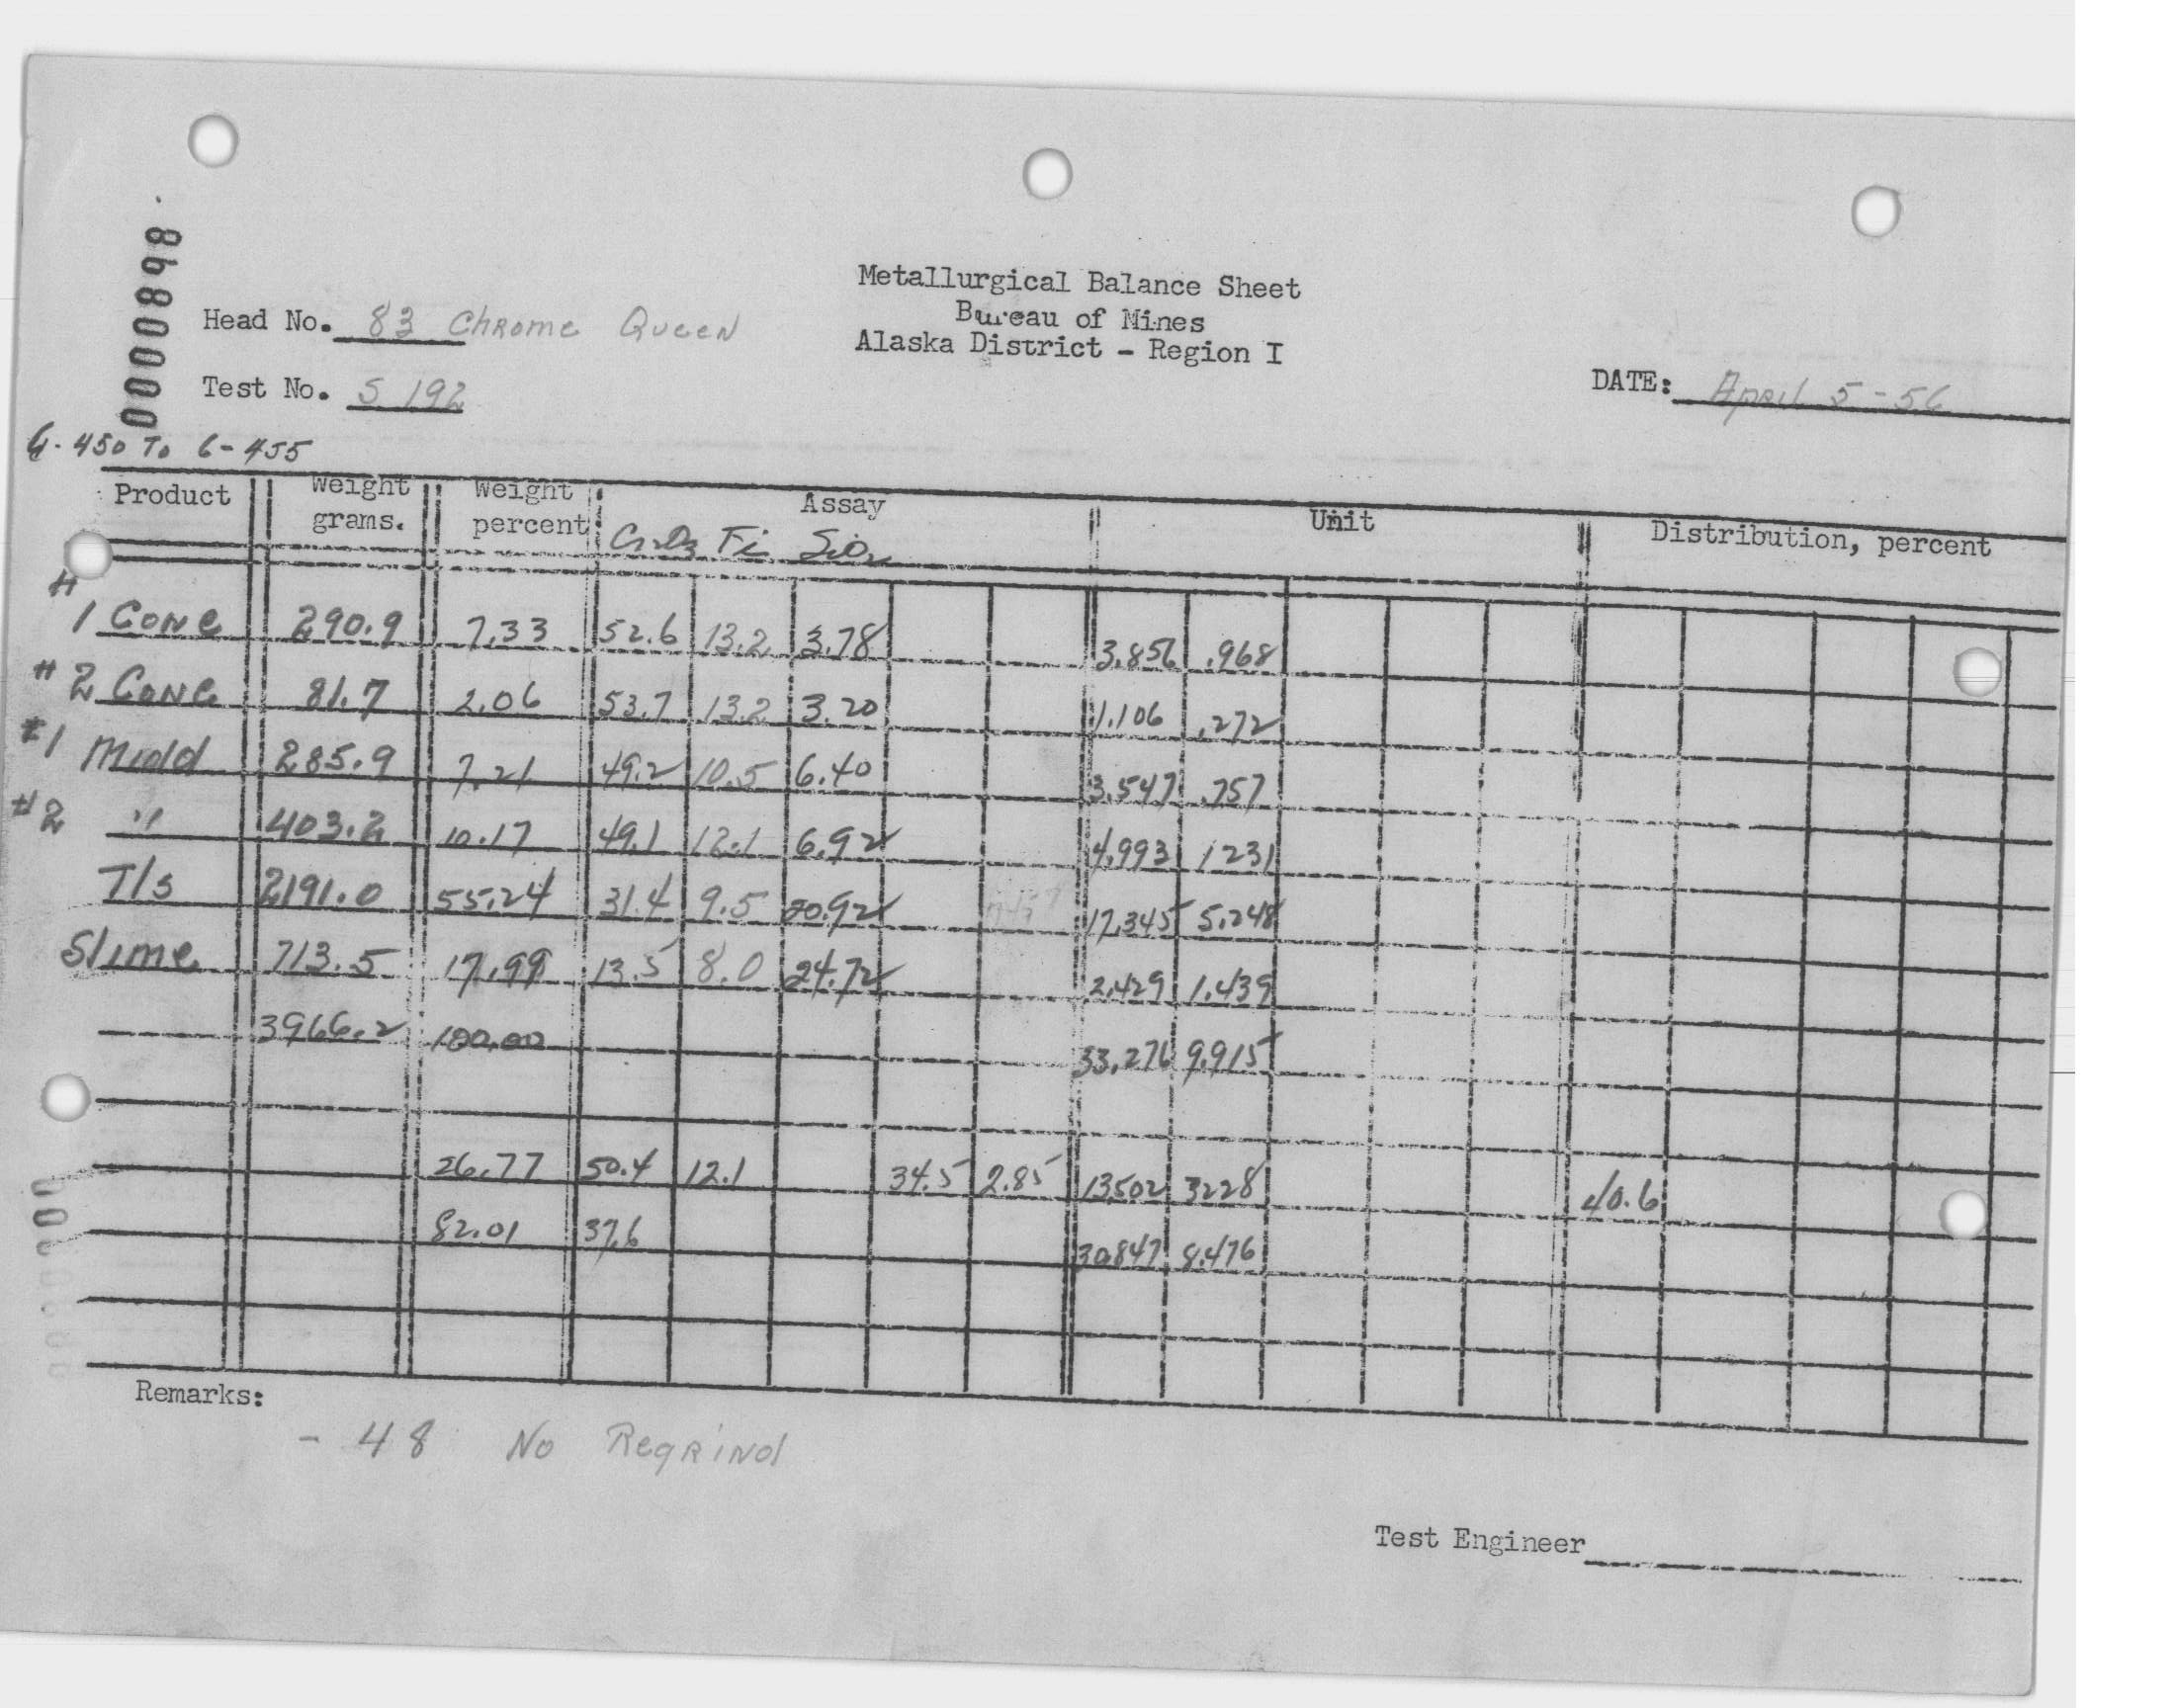 0000898
Metallurgical Balance Sheet
Bureau of Mines
Alaska District - Region I
Head No. 83 Chrome Queen
Test No. S 192
DATE: April 5-56
6-450 To 6-455
Product Weight grams. Weight percent Assay Unit Distribution, percent
Cr2O3 Fe SiO2
#1 Conc 290.9 7.33 52.6 13.2 3.78 3.856 .968
#2 Conc 81.7 2.06 53.7 13.2 3.20 1.106 .272
#1 Midd 285.9 7.21 49.2 10.5 6.40 3.547 .757
#2 " 403.2 10.17 49.1 12.1 6.92 4.993 1231
T/s 2191.0 55.24 31.4 9.5 20.92 17.345 5.248
Slime 713.5 17.99 13.5 8.0 24.72 2.429 1.439
3966.2 100.00 33.276 9.915
26.77 50.4 12.1 34.5 2.85 13502 3228 40.6
82.01 37.6 30.847 8.476
Remarks:
- 48 No Regrind
Test Engineer